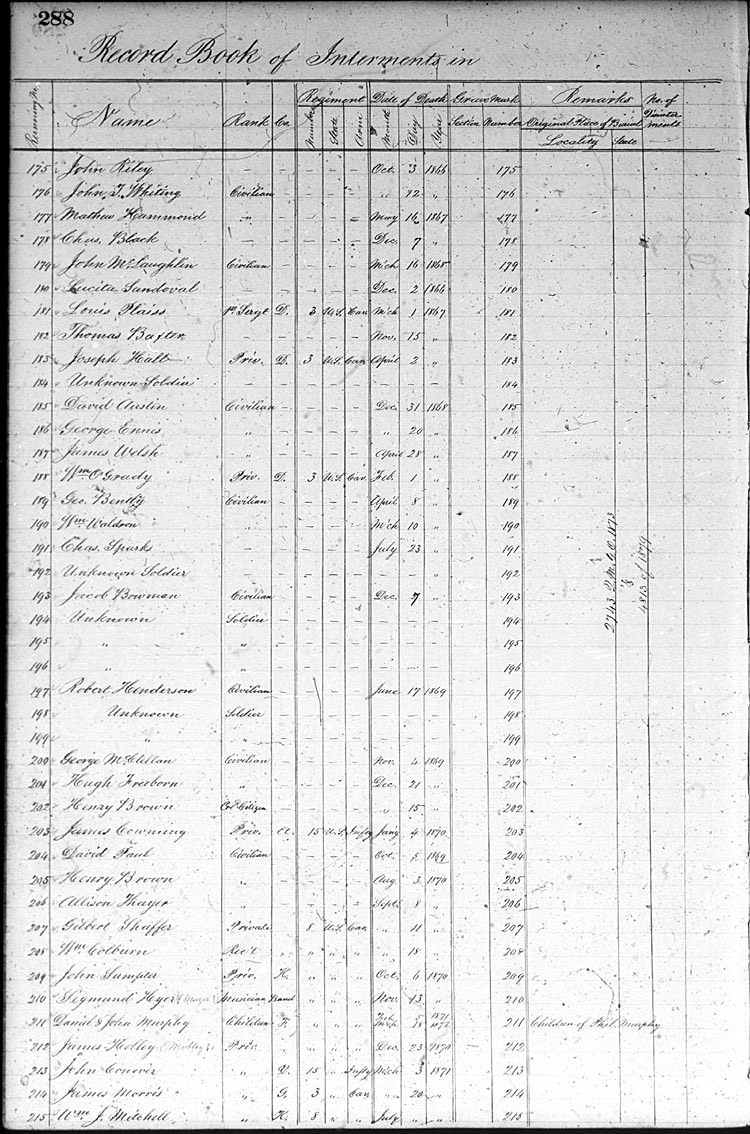 288
Record Book of Interments in
Regiment Date of Death Grave Mark Remarks No. of
Name Rank Co. Number State Arm Month Day Year Section Number Original Place of Burial Disinterments
Locality State
175 John Riley — — — — — Oct. 3 1866 175
176 John T. Whiting Civilian — — — — „ 12 „ 176
177 Mathew Hammond „ — — — — May 16 1867 177
178 Chas. Black — — — — — Dec. 7 „ 178
179 John McLaughlin Civilian — — — — Mch 16 1868 179
180 Lucita Sandoval — — — — — Dec. 2 1866 180
181 Louis Plaiss 1st Sergt D. 3 U.S. Cav Mch 1 1867 181
182 Thomas Baxter — — — — — Nov. 15 „ 182
183 Joseph Hall Priv. D. 3 U.S. Cav April 2 „ 183
184 Unknown Soldier — — — — — — — — 184
185 David Austin Civilian — — — — Dec. 31 1868 185
186 George Ennis „ — — — — „ 20 „ 186
187 James Welsh „ — — — — April 28 „ 187
188 Wm O'Grady Priv. D. 3 U.S. Cav. Feb. 1 „ 188
189 Geo. Bently Civilian — — — — April 8 „ 189
190 Wm Waldron „ — — — — Mch 10 „ 190
191 Chas. Sparks — — — — — July 23 „ 191
192 Unknown Soldier — — — — — — — „ 192
193 Jacob Bowman Civilian — — — — Dec. 7 „ 193
194 Unknown Soldier — — — — — — — 194
195 „ „ — — — — — — — 195
196 „ „ — — — — — — — 196
197 Robert Henderson Civilian — — — — June 17 1869 197
198 Unknown Soldier — — — — — — — 198
199 „ „ — — — — — — — 199
200 George McClellan Civilian — — — — Nov. 4 1869 200
201 Hugh Freeborn — — — — — Dec. 21 „ 201
202 Henry Brown Cold Citizen — — — — „ 15 „ 202
203 James Cowning Priv. A. 15 U.S. Inf'ty Jany 4 1870 203
204 David Paul Civilian — — — — Oct. 5 1869 204
205 Henry Brown „ — — — — Aug 3 1870 205
206 Allison Thayer — — — — — Sept. 8 „ 206
207 Gilbert Shaffer Private 8 U.S. Cav. „ 11 „ 207
208 Wm Colburn Rec't „ „ „ „ „ 18 „ 208
209 John Sumpter Priv. K. „ „ „ Oct. 6 1870 209
210 Sigmund Hyer Musician Band „ „ „ Nov. 13 „ 210
211 Daniel & John Murphy Children F. „ „ „ 5 18 1871 1872 211 Children of Phil. Murphy
212 James Holley Priv. „ „ „ „ Dec. 23 1870 212
213 John Conover „ D. 15 „ Inf'ty Mch 3 1871 213
214 James Morris „ G. 3 „ Cav „ 20 „ 214
215 Wm J. Mitchell „ K. 8 „ „ July „ „ 215
2743 Q.M.G.O. 1873
&
4813 of 1879